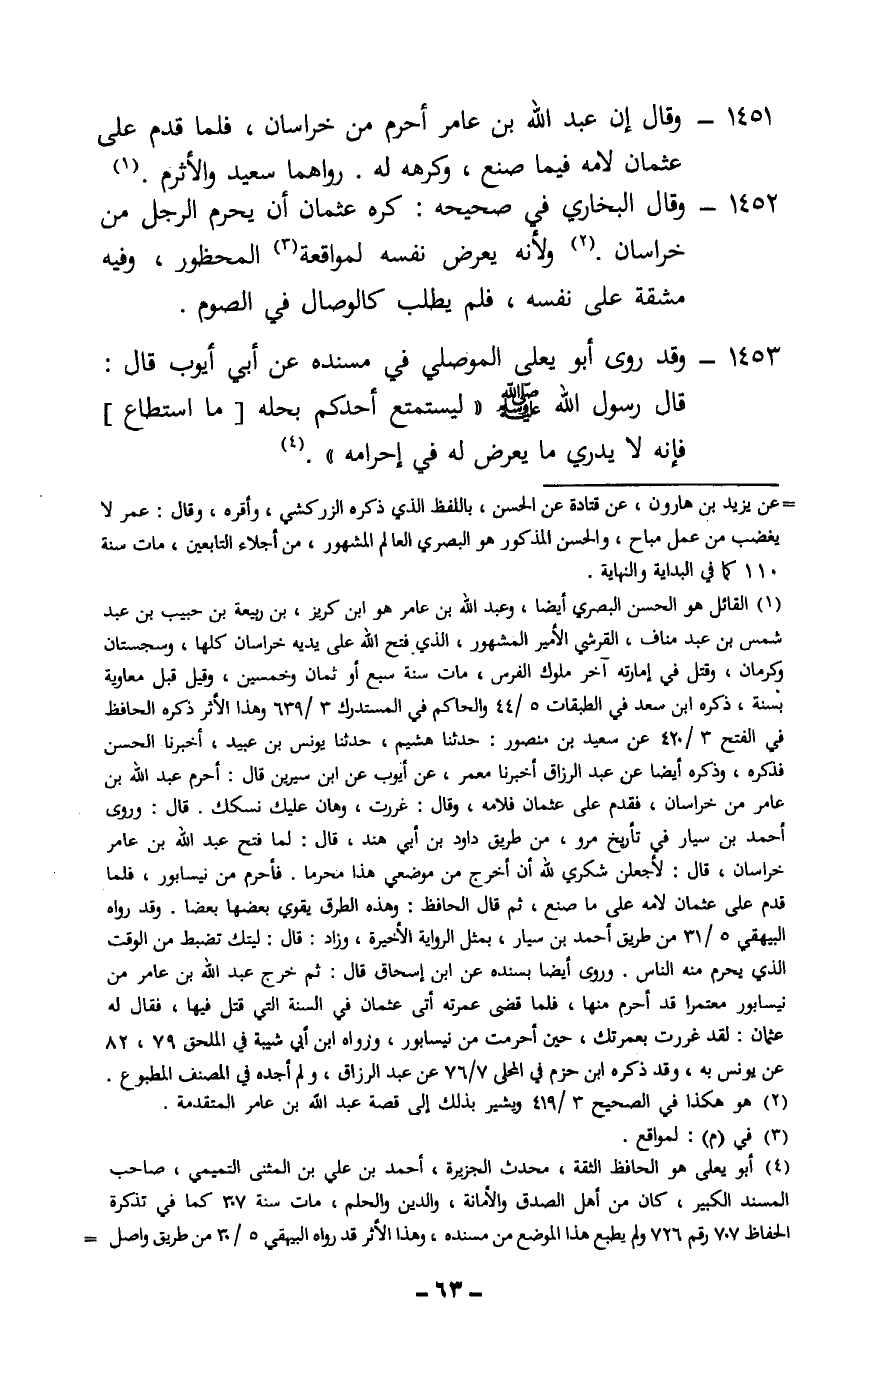 ١٤٥١ – وقال إن عبد الله بن عامر أحرم من خراسان ، فلما قدم على
عثمان لامه فيما صنع ، وكرهه له . رواهما سعيد والأثرم .(١)
١٤٥٢ – وقال البخاري في صحيحه : كره عثمان أن يحرم الرجل من
خراسان .(٢) ولأنه يعرض نفسه لمواقعة(٣) المحظور ، وفيه
مشقة على نفسه ، فلم يطلب كالوصال في الصوم .
١٤٥٣ – وقد روى أبو يعلى الموصلي في مسنده عن أبي أيوب قال :
قال رسول الله ﷺ « ليستمتع أحدكم بحله [ ما استطاع ]
فإنه لا يدري ما يعرض له في إحرامه » .(٤)
= عن يزيد بن هارون ، عن قتادة عن الحسن ، باللفظ الذي ذكره الزركشي ، وأقره ، وقال : عمر لا
يغضب من عمل مباح ، والحسن المذكور هو البصري العالم المشهور ، من أجلاء التابعين ، مات سنة
١١٠ كما في البداية والنهاية .
(١) القائل هو الحسن البصري أيضا ، وعبد الله بن عامر هو ابن كريز ، بن ربيعة بن حبيب بن عبد
شمس بن عبد مناف ، القرشي الأمير المشهور ، الذي فتح الله على يديه خراسان كلها ، وسجستان
وكرمان ، وقتل في إمارته آخر ملوك الفرس ، مات سنة سبع أو ثمان وخمسين ، وقيل قبل معاوية
بسنة ، ذكره ابن سعد في الطبقات ٥ /٤٤ والحاكم في المستدرك ٣ /٦٣٩ وهذا الأثر ذكره الحافظ
في الفتح ٣ /٤٢٠ عن سعيد بن منصور : حدثنا هشيم ، حدثنا يونس بن عبيد ، أخبرنا الحسن
فذكره ، وذكره أيضا عن عبد الرزاق أخبرنا معمر ، عن أيوب عن ابن سيرين قال : أحرم عبد الله بن
عامر من خراسان ، فقدم على عثمان فلامه ، وقال : غررت ، وهان عليك نسكك . قال : وروى
أحمد بن سيار في تأريخ مرو ، من طريق داود بن أبي هند ، قال : لما فتح عبد الله بن عامر
خراسان ، قال : لأجعلن شكري لله أن أخرج من موضعي هذا محرما . فأحرم من نيسابور ، فلما
قدم على عثمان لامه على ما صنع ، ثم قال الحافظ : وهذه الطرق يقوي بعضها بعضا . وقد رواه
البيهقي ٥ /٣١ من طريق أحمد بن سيار ، بمثل الرواية الأخيرة ، وزاد : قال : ليتك تضبط من الوقت
الذي يحرم منه الناس . وروى أيضا بسنده عن ابن إسحاق قال : ثم خرج عبد الله بن عامر من
نيسابور معتمرا قد أحرم منها ، فلما قضى عمرته أتى عثمان في السنة التي قتل فيها ، فقال له
عثمان : لقد غررت بعمرتك ، حين أحرمت من نيسابور ، ورواه ابن أبي شيبة في الملحق ٧٩ ، ٨٢
عن يونس به ، وقد ذكره ابن حزم في المحلى ٧٦/٧ عن عبد الرزاق ، ولم أجده في المصنف المطبوع .
(٢) هو هكذا في الصحيح ٣ /٤١٩ ويشير بذلك إلى قصة عبد الله بن عامر المتقدمة .
(٣) في (م) : لمواقع .
(٤) أبو يعلى هو الحافظ الثقة ، محدث الجزيرة ، أحمد بن علي بن المثنى التميمي ، صاحب
المسند الكبير ، كان من أهل الصدق والأمانة ، والدين والحلم ، مات سنة ٣٠٧ كما في تذكرة
الحفاظ ٧٠٧ رقم ٧٢٦ ولم يطبع هذا الموضع من مسنده ، وهذا الأثر قد رواه البيهقي ٥ /٣٠ من طريق واصل =
– ٦٣ –